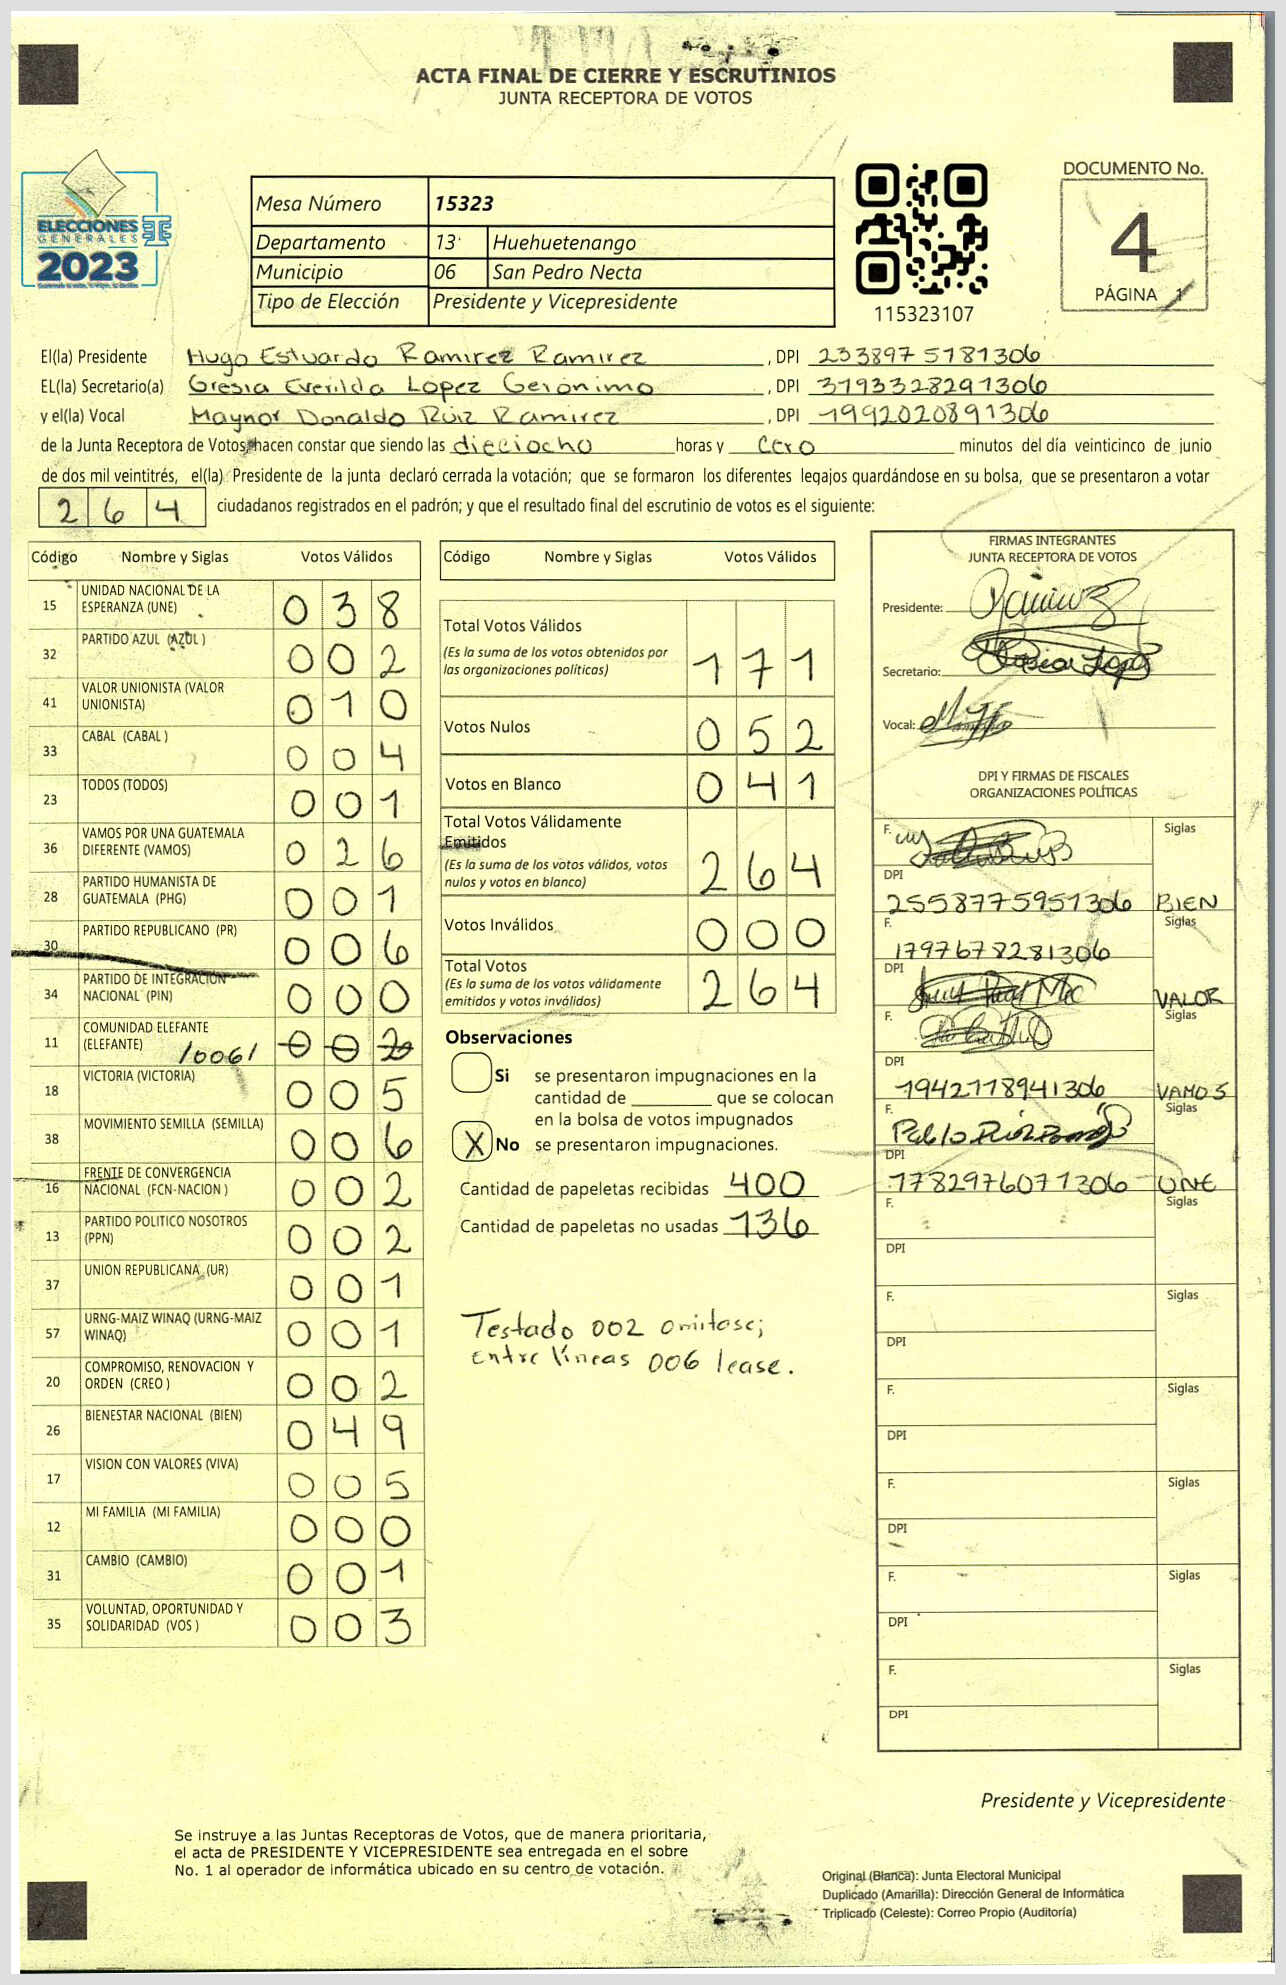 ACTA FINAL DE CIERRE Y ESCRUTINIOS
JUNTA RECEPTORA DE VOTOS
ELECCIONES
GENERALES
2023
Mesa Número 15323
Departamento 13 Huehuetenango
Municipio 06 San Pedro Necta
Tipo de Elección Presidente y Vicepresidente
115323107
DOCUMENTO No.
4
PÁGINA 1
El(la) Presidente Hugo Estuardo Ramirez Ramirez , DPI 2338975181306
EL(la) Secretario(a) Gresia Everilda Lopez Gerónimo , DPI 3193328291306
y el(la) Vocal Maynor Donaldo Ruiz Ramirez , DPI 1992020891306
de la Junta Receptora de Votos, hacen constar que siendo las dieciocho horas y cero minutos del día veinticinco de junio
de dos mil veintitrés, el(la) Presidente de la junta declaró cerrada la votación; que se formaron los diferentes legajos guardándose en su bolsa, que se presentaron a votar
264 ciudadanos registrados en el padrón; y que el resultado final del escrutinio de votos es el siguiente:
Código Nombre y Siglas Votos Válidos
15 UNIDAD NACIONAL DE LA ESPERANZA (UNE) 038
32 PARTIDO AZUL (AZUL ) 002
41 VALOR UNIONISTA (VALOR UNIONISTA) 010
33 CABAL (CABAL ) 004
23 TODOS (TODOS) 001
36 VAMOS POR UNA GUATEMALA DIFERENTE (VAMOS) 026
28 PARTIDO HUMANISTA DE GUATEMALA (PHG) 001
30 PARTIDO REPUBLICANO (PR) 006
34 PARTIDO DE INTEGRACION NACIONAL (PIN) 000
11 COMUNIDAD ELEFANTE (ELEFANTE) /006/ 002
18 VICTORIA (VICTORIA) 005
38 MOVIMIENTO SEMILLA (SEMILLA) 006
16 FRENTE DE CONVERGENCIA NACIONAL (FCN-NACION ) 002
13 PARTIDO POLITICO NOSOTROS (PPN) 002
37 UNION REPUBLICANA (UR) 001
57 URNG-MAIZ WINAQ (URNG-MAIZ WINAQ) 001
20 COMPROMISO, RENOVACION Y ORDEN (CREO ) 002
26 BIENESTAR NACIONAL (BIEN) 049
17 VISION CON VALORES (VIVA) 005
12 MI FAMILIA (MI FAMILIA) 000
31 CAMBIO (CAMBIO) 001
35 VOLUNTAD, OPORTUNIDAD Y SOLIDARIDAD (VOS ) 003
Código Nombre y Siglas Votos Válidos
Total Votos Válidos 171
(Es la suma de los votos obtenidos por
las organizaciones políticas)
Votos Nulos 052
Votos en Blanco 041
Total Votos Válidamente
Emitidos 264
(Es la suma de los votos válidos, votos
nulos y votos en blanco)
Votos Inválidos 000
Total Votos 264
(Es la suma de los votos válidamente
emitidos y votos inválidos)
Observaciones
Si se presentaron impugnaciones en la
cantidad de ________ que se colocan
en la bolsa de votos impugnados
X No se presentaron impugnaciones.
Cantidad de papeletas recibidas 400
Cantidad de papeletas no usadas 136
Testado 002 omitase;
entre líneas 006 lease.
FIRMAS INTEGRANTES
JUNTA RECEPTORA DE VOTOS
Presidente: Ramirez
Secretario:
Vocal:
DPI Y FIRMAS DE FISCALES
ORGANIZACIONES POLÍTICAS
F. Siglas
DPI 2558775951306 BIEN
F. 1797678281306 Siglas
DPI VALOR
F. Siglas
DPI 1942118941306 VAMOS
F. Pablo Siglas
DPI 1782976071306 UNE
F. Siglas
DPI
F. Siglas
DPI
F. Siglas
DPI
F. Siglas
DPI
F. Siglas
DPI
F. Siglas
DPI
Presidente y Vicepresidente
Se instruye a las Juntas Receptoras de Votos, que de manera prioritaria,
el acta de PRESIDENTE Y VICEPRESIDENTE sea entregada en el sobre
No. 1 al operador de informática ubicado en su centro de votación.
Original (Blanca): Junta Electoral Municipal
Duplicado (Amarilla): Dirección General de Informática
Triplicado (Celeste): Correo Propio (Auditoría)